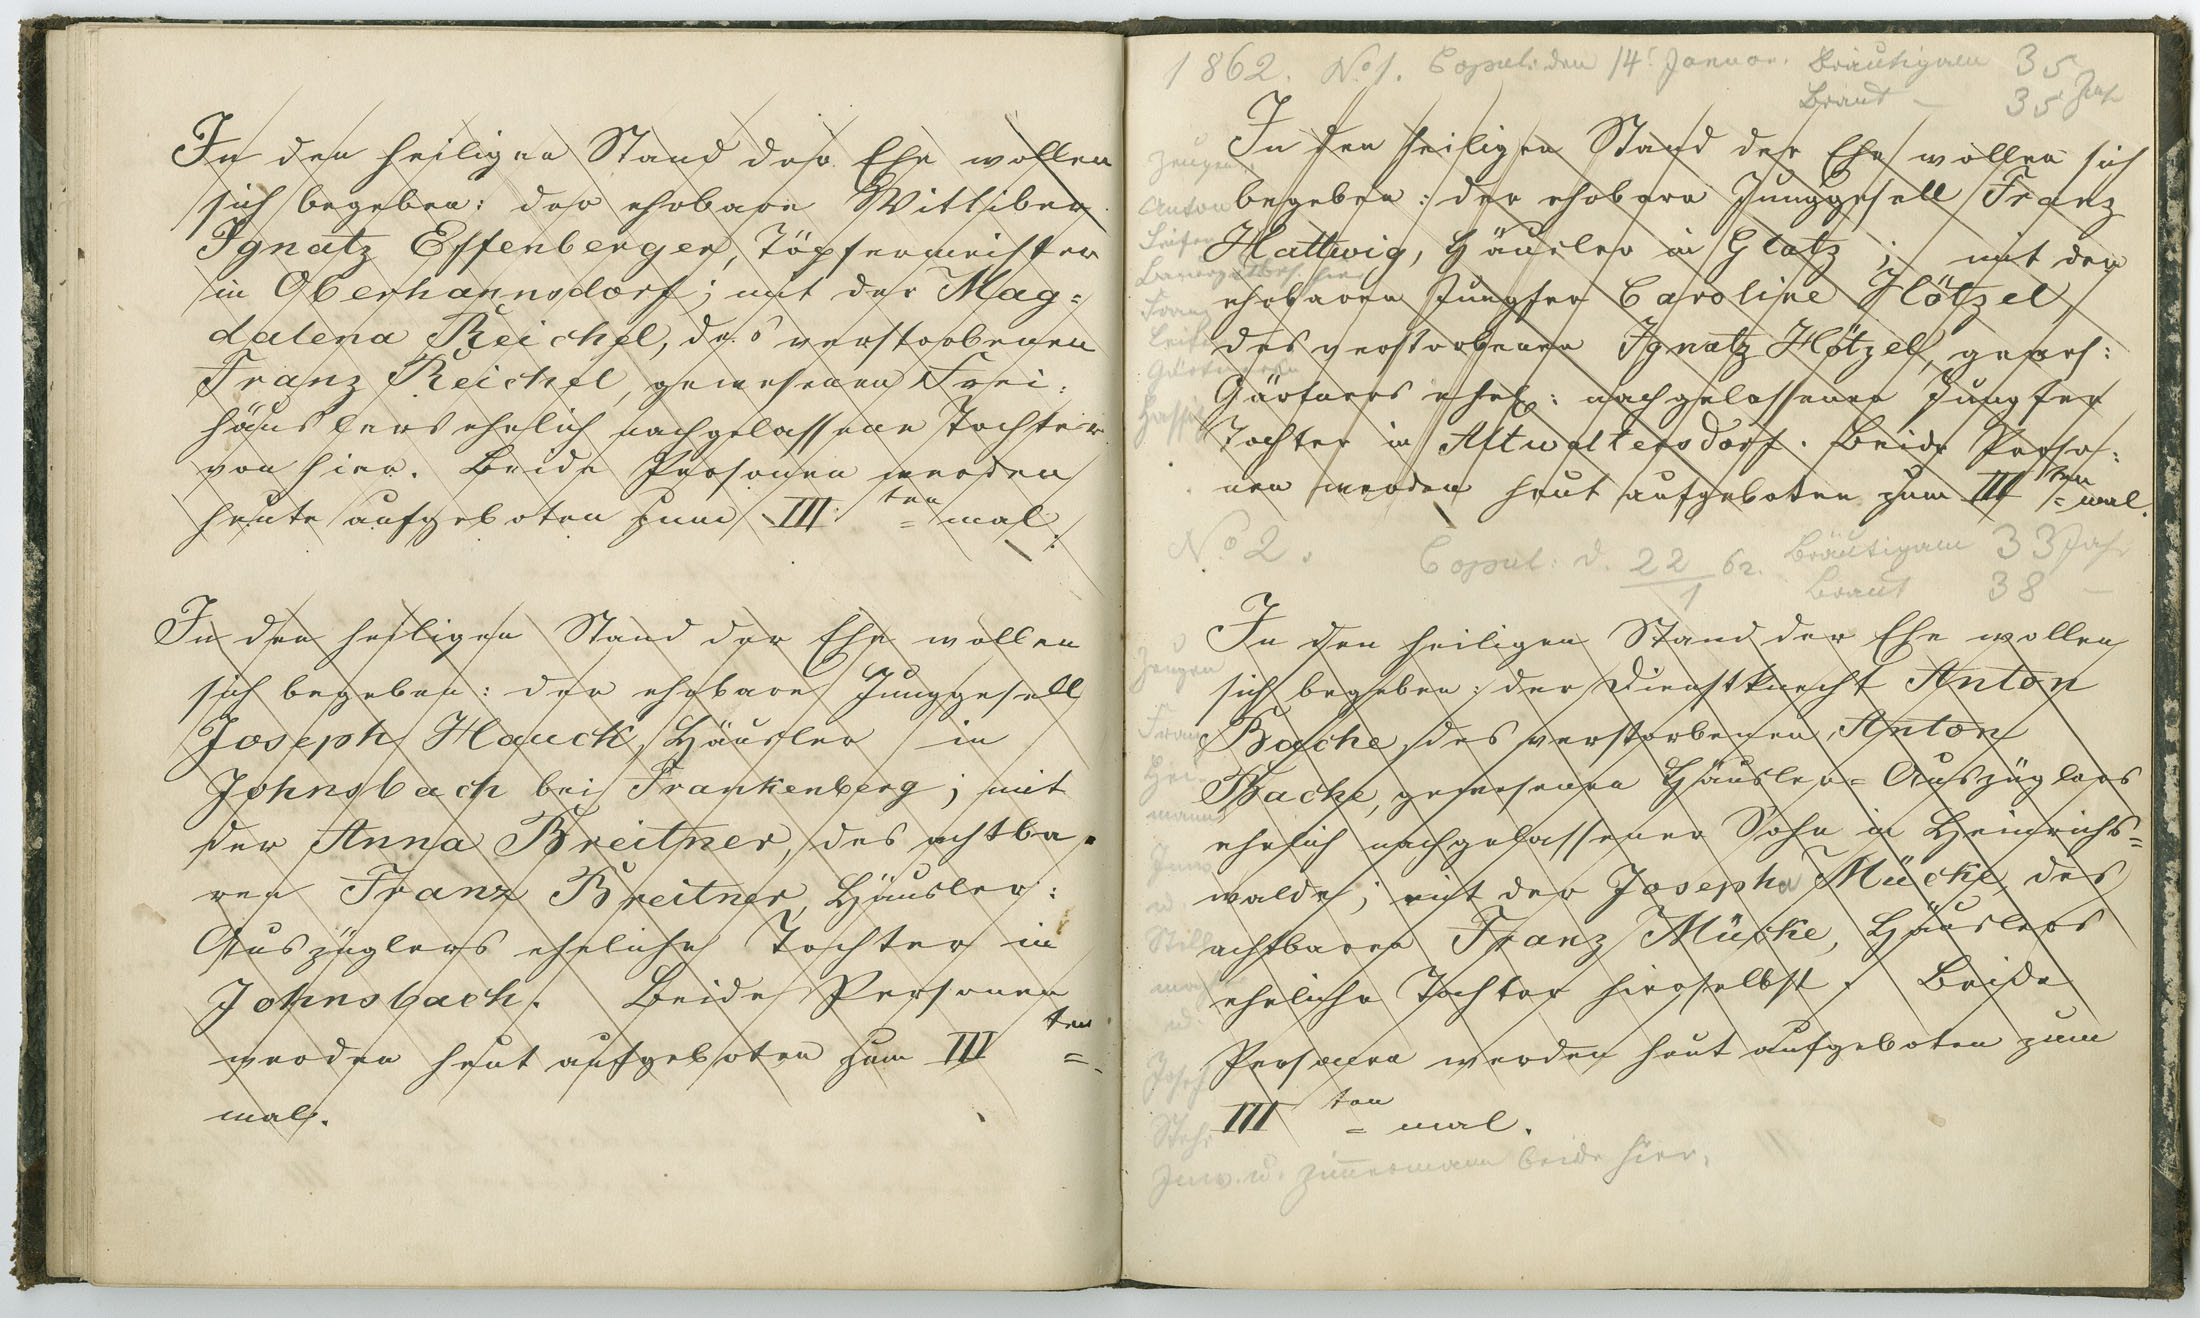 In den heiligen Stand der Ehe wollen
sich begeben: der ehrbare Wittiber
Ignatz Effenberger, Töpfermeister
in Oberhannsdorf; mit der Mag=
dalena Reichel, des verstorbenen
Franz Reichel, gewesenen Frei:
häuslers ehelich nachgelassene Tochter
von hier. Beide Personen werden
heute aufgeboten zum III ten = mal.
In den heiligen Stand der Ehe wollen
sich begeben: der ehrbare Junggesell
Joseph Hauck, Häusler in
Johnsbach bei Frankenberg; mit
der Anna Breitner, des achtba=
ren Franz Breitner, Häusler:
Auszüglers eheliche Tochter in
Johnsbach. Beide Personen
werden heut aufgeboten zum III ten =
mal.
1862. No 1. Copul: den 14t Januar. Bräutigam 35
Braut — 35 Jahr
In den heiligen Stand der Ehe wollen sich
begeben: der ehrbare Junggesell Franz
Hattwig, Häusler in Glatz; mit der
ehrbaren Jungfer Caroline Hötzel,
des verstorbenen Ignatz Hötzel, gewes:
Gärtners ehel: nachgelassener Jungfer
Tochter in Altwaltersdorf. Beide Perso:
nen werden heut aufgeboten zum III ten = mal.
Zeugen
Anton
Franz
No 2. Copul: d. 22/1 62. Bräutigam 33 Jahr
Braut 38 —
In den heiligen Stand der Ehe wollen
sich begeben: der Dienstknecht Anton
Bache, des verstorbenen Anton
Bache, gewesenen Häusler= Auszüglers
ehelich nachgelassener Sohn in Heinrichs=
walde; mit der Josepha Mücke, des
achtbaren Franz Mücke, Häuslers
eheliche Tochter hierselbst. Beide
Personen werden heut aufgeboten zum
III ten = mal.
Zeugen
Franz
mann
Inw.
u.
Joseph
Inw. u. Zimmermann beide hier.